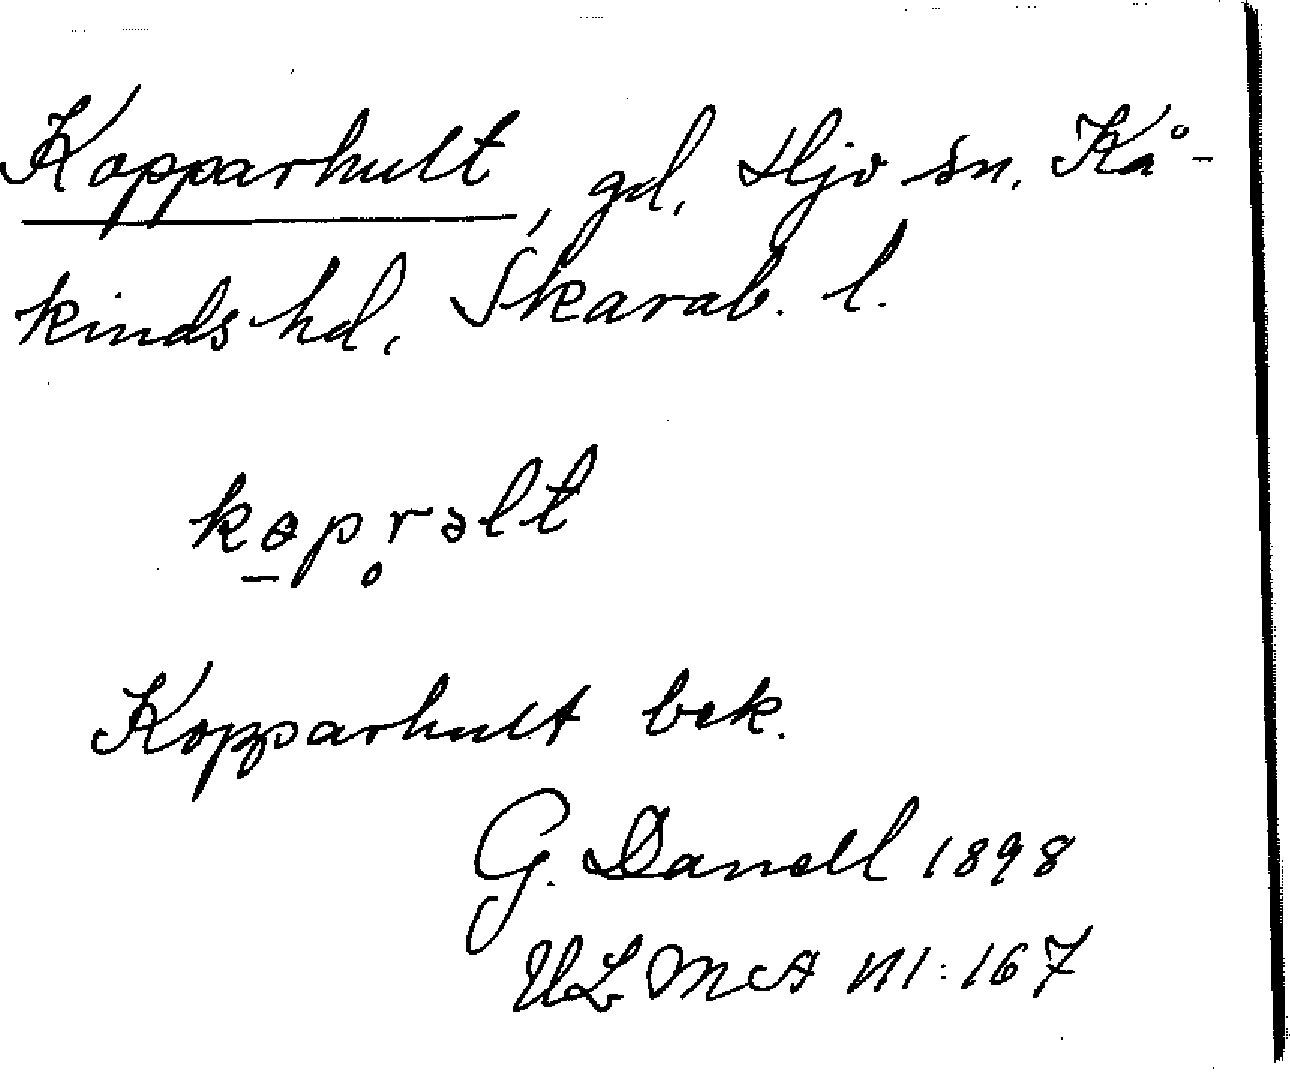 Kopparhult, gd, Hjo sn, Kå-
kinds hd, Skarab. l.
kɵpr̥əlt
Kopparhult bek.
G. Danell 1898
ULMA 111:167